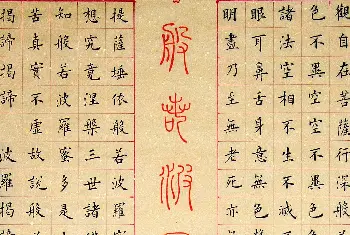 觀自在菩薩行深般
色不異空空不異色
諸法空相不生不滅
眼耳鼻舌身意無色
明盡乃至無老死亦
般若波
提薩埵依般若波羅
想究竟涅槃三世諸
知般若波羅蜜多是
苦真實不虛故說般
揭諦揭諦 波羅揭